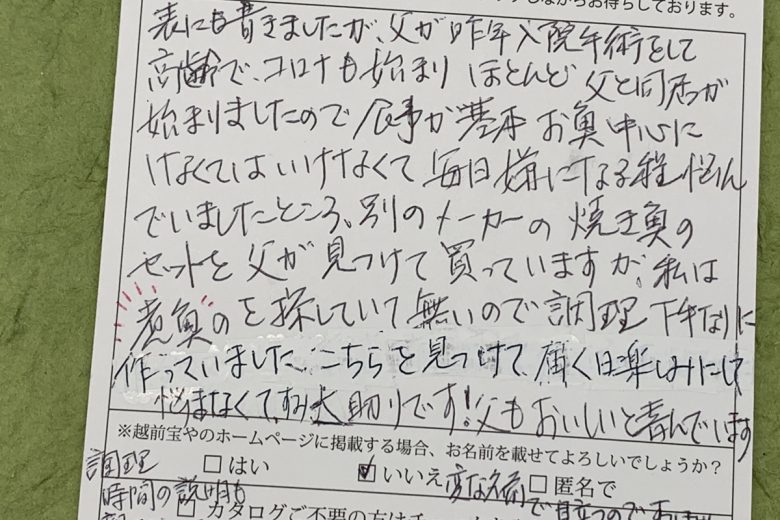 しながらお待ちしております。
表にも書きましたが、父が昨年入院手術をして
高齢で、コロナも始まり ほとんど 父と同居が
始まりましたので 食事が基本 お魚中心に
しなくてはいけなくて 毎日嫌になる程 悩ん
でいましたところ。別のメーカーの焼き魚の
セットを 父が見つけて買っていますが、私は
"煮魚"のを探していて 無いので 調理 下手なりに
作っていました。こちらを見つけて、届く日楽しみにして
悩まなくてすみ大助かりです!父もおいしいと喜んでいます
※越前宝やのホームページに掲載する場合、お名前を載せてよろしいでしょうか?
□はい ☑いいえ 変な名前 □匿名で
調理
時間の説明も
で目立つので
カタログご不要の方はチェック